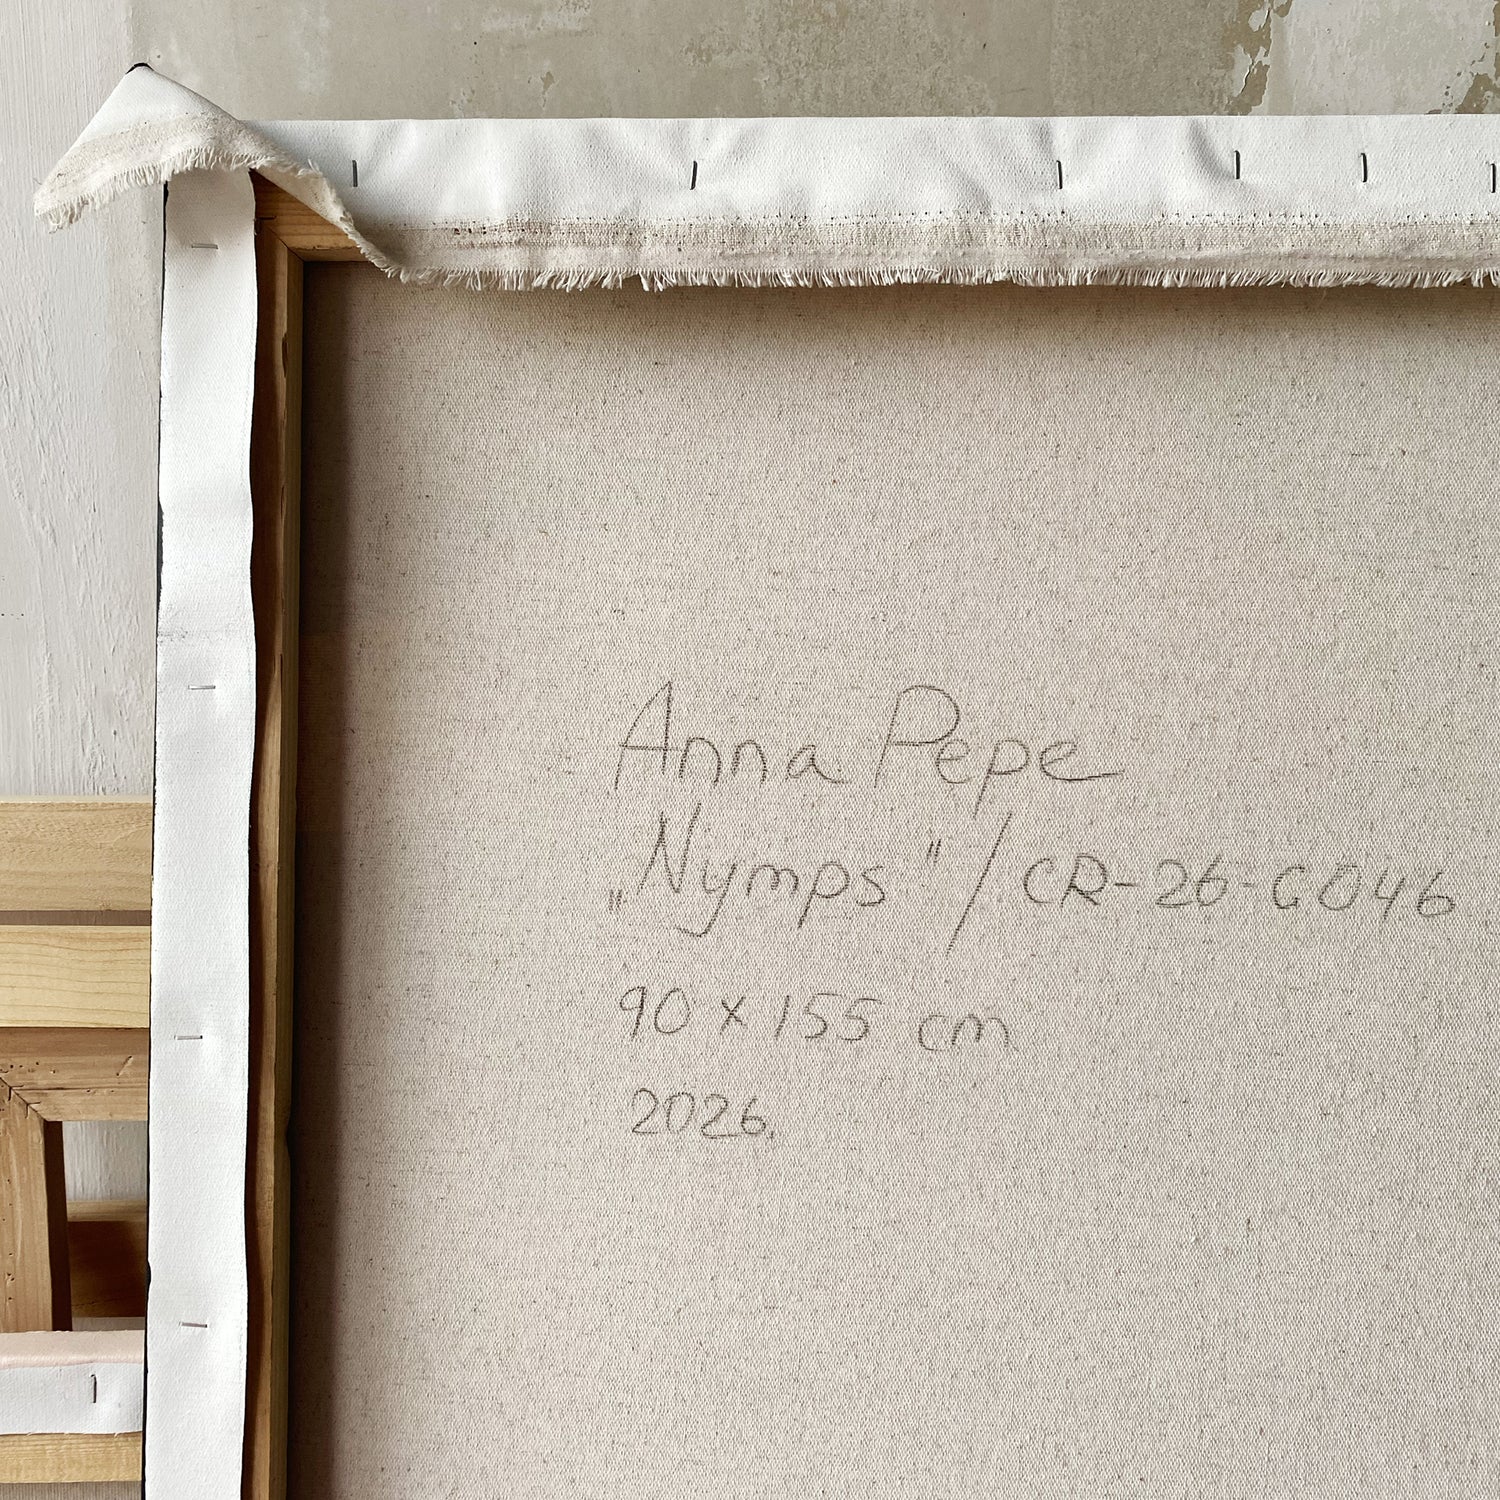 Anna Pepe
„Nymps" / CR-26-G046
90 x 155 cm
2026.